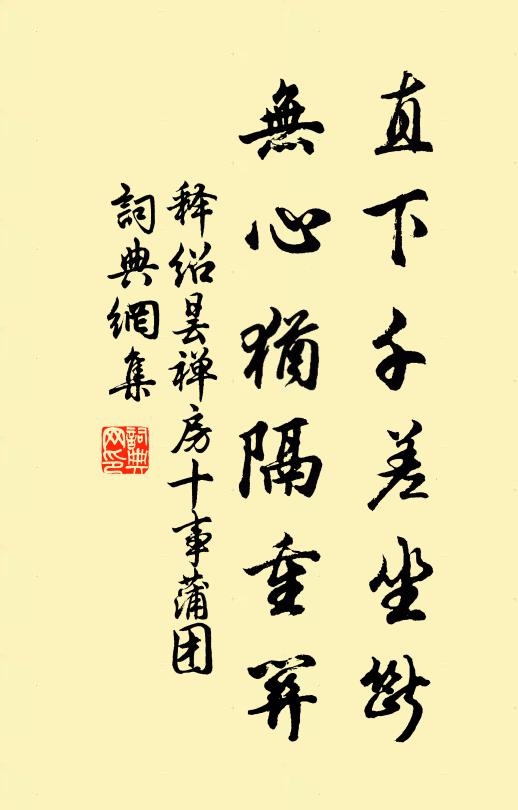 直下千差坐斷
無心猶隔重關
释绍昙禅房十事蒲团
詞典網集
詞典网印